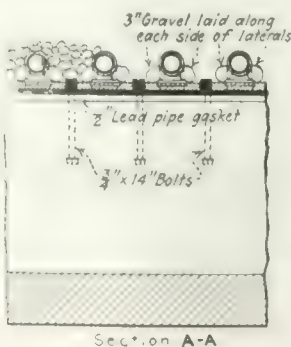 3"Gravel laid along
each side of laterals
1/2" Lead pipe gasket
3/4"x14"Bolts
Section A-A